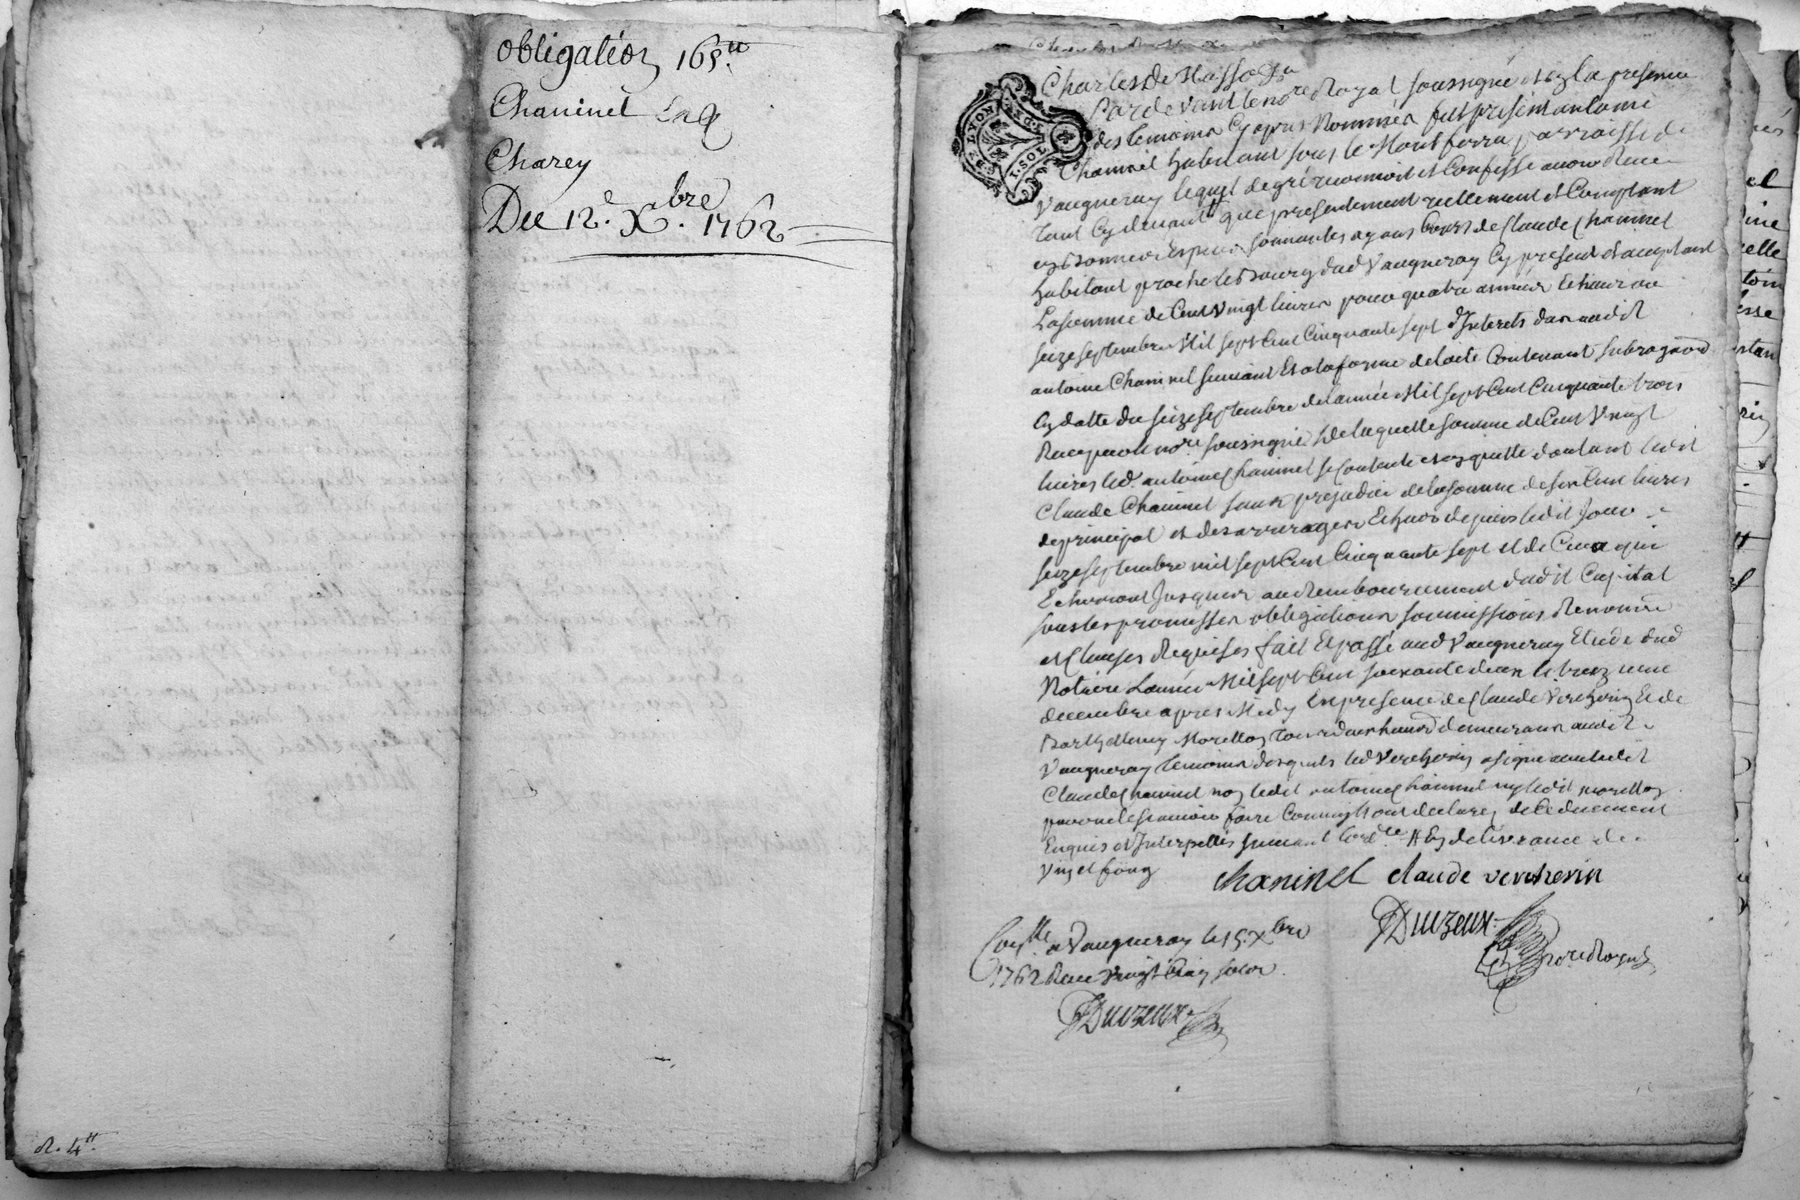 obligation 168.tt
Chaninel
Charey
Du 12.e Xbre. 1762
R. 4.tt
LYON
1. SOL
Charles De
Pardevant le nore Royal soussigné et en la presence
des temoins cy apres Nommés fut present antoine
Chaninel habitant sous le Montferra parroisse de
Vaugneray lequel de gré reconnoit et Confesse avoir Receu
tant cy devant que presentement reellement et Comptant
en bonnes Especes sonnantes ayans cours de Claude Chaninel
habitant proche le Bourg dud Vaugneray Cy present et acceptant
La somme de Cent Vingt livres pour quatre années Echeues au
seize septembre Mil sept Cent Cinquante sept d'Interets dus audit
antoine Chaninel suivant Et a la forme de l'acte Contenant
En datte du seize septembre de l'année Mil sept Cent Cinquante trois
Receu par le nore soussigné de laquelle somme de Cent Vingt
livres led. antoine Chaninel se Contente et en quitte d'autant ledit
Claude Chaninel sans prejudice de la somme de six Cent livres
de principal et des arrerages Echus depuis ledit Jour
seize septembre mil sept Cent Cinquante sept et de Ceux qui
Echerront Jusques au Remboursement dudit Capital
sous les promesses obligations soumissions Renonces
et Clauses Requises fait Et passé aud Vaugneray Etude dud
Notaire L'année Mil sept Cent soixante deux le
decembre apres Midy En presence de Claude Vercherin Et de
Barthelemy Morellon demeurans audit
Vaugneray temoins desquels led Vercherin a signé avec ledit
Claude Chaninel non ledit antoine Chaninel ny ledit Morellon
pour ne le scavoir faire Comme ils ont declaré de ce duement
Enquis et Interpellés suivant l'ordce En delivrance de
Chaninel claude vercherin
Duvzeux
nore Royal
Conlle a Vaugneray le 15. Xbre
1762 Receu Vingt Cinq sols
Duvzeux